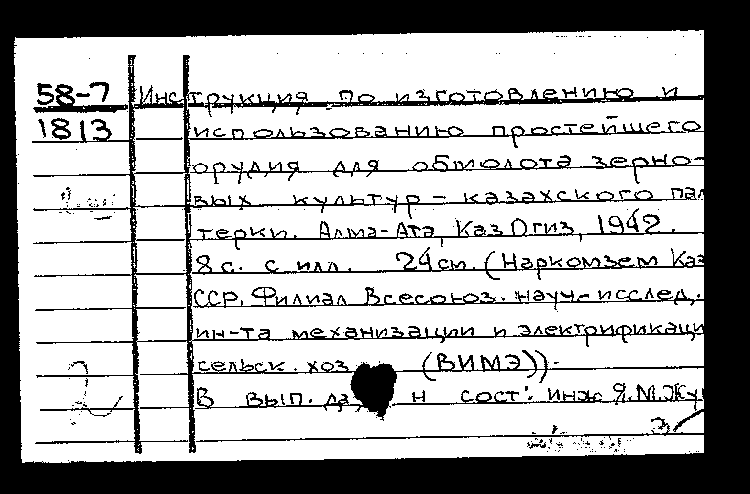 58-7 Инструкция по изготовлению и
1813 использованию простейшего
орудия для обмолота зерно-
вых культур - казахского пал
терки. Алма-Ата, КазОгиз, 1942.
8 с. с илл. 24 см. (Наркомзем Каз
ССР, Филиал Всесоюз. науч-исслед.
ин-та механизации и электрификаци
сельск. хоз (ВИМЭ)).
В вып. да н сост: инж Я.М.Жу
2